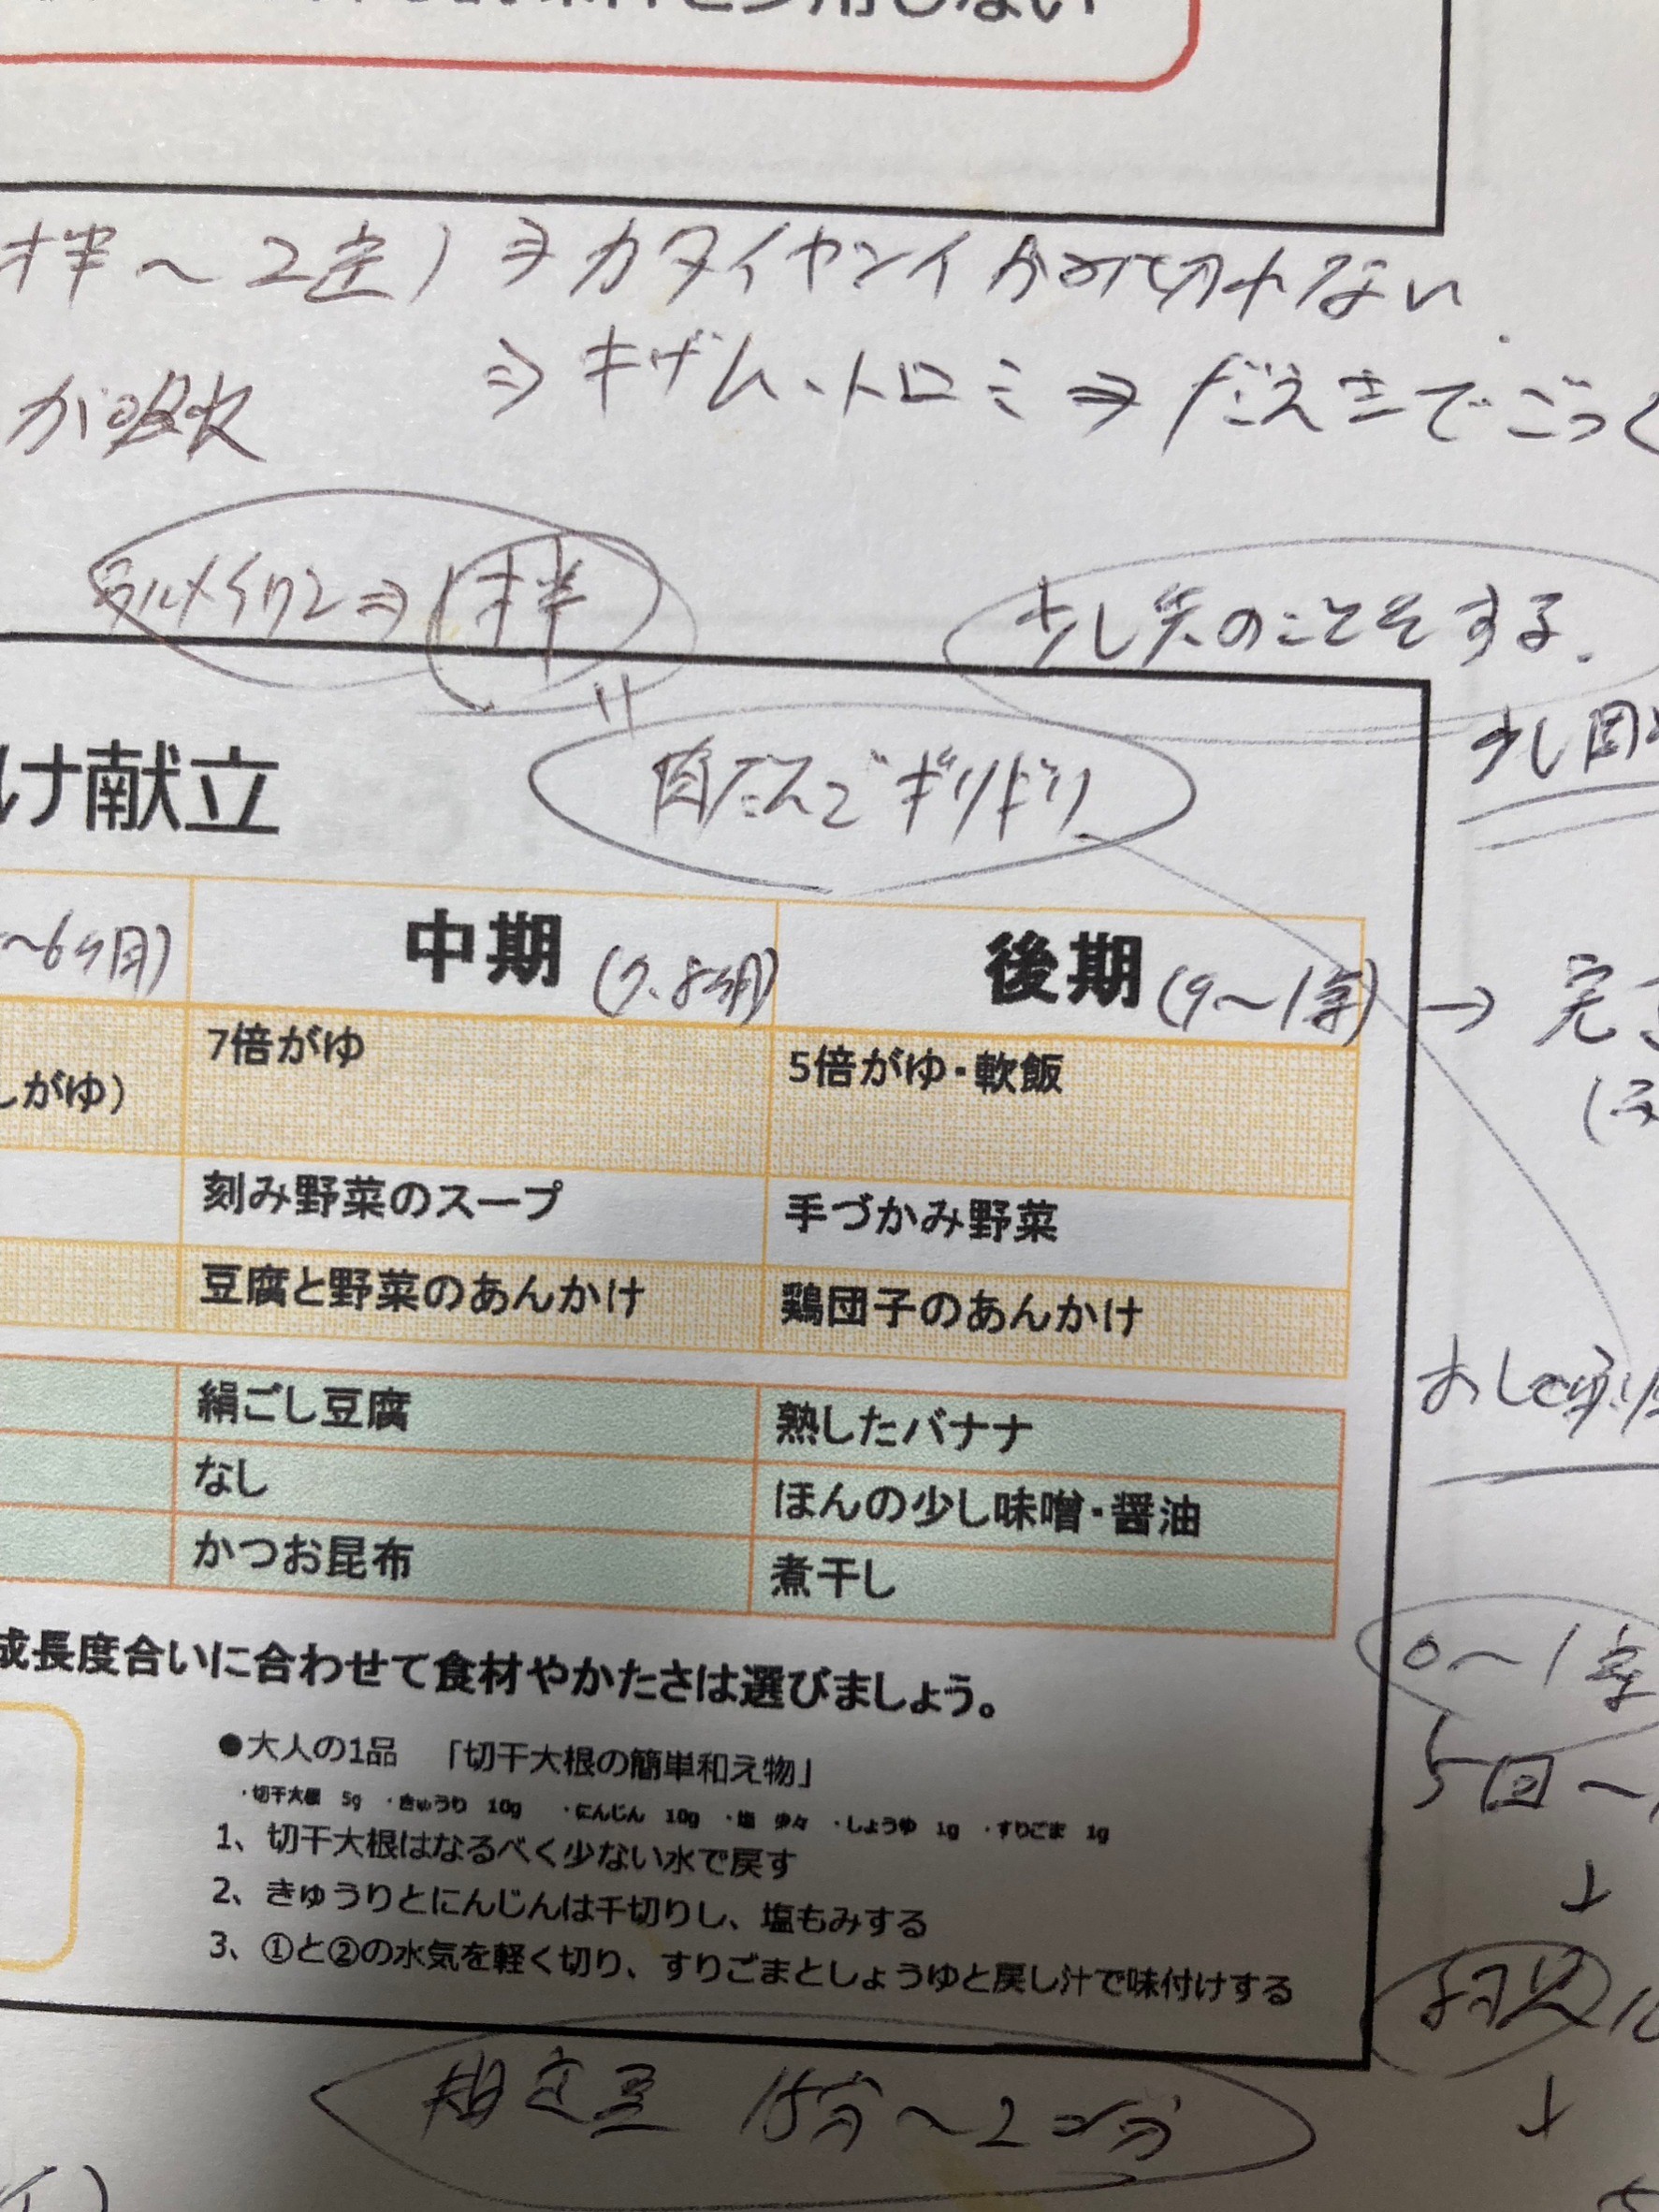 しない
才半～2定) ⇒ カタイヤサイかみ切れない.
が吸水 ⇒ キザム、トロミ ⇒ だえきでごっく
⇒ 才半
少し先のことをする.
少し固
け献立
肉だんごギリギリ
～6ヶ月)
中期 (7.8ヶ月)
後期 (9～1才) → 完
しがゆ)
7倍がゆ
5倍がゆ・軟飯
刻み野菜のスープ
手づかみ野菜
豆腐と野菜のあんかけ
鶏団子のあんかけ
絹ごし豆腐
熟したバナナ
なし
ほんの少し味噌・醤油
かつお昆布
煮干し
成長度合いに合わせて食材やかたさは選びましょう。
0～1才
●大人の1品 「切干大根の簡単和え物」
・切干大根 5g ・きゅうり 10g ・にんじん 10g ・塩 少々 ・しょうゆ 1g ・すりごま 1g
5回～
1、切干大根はなるべく少ない水で戻す
2、きゅうりとにんじんは千切りし、塩もみする
↓
3、①と②の水気を軽く切り、すりごまとしょうゆと戻し汁で味付けする
15分～20分
↓